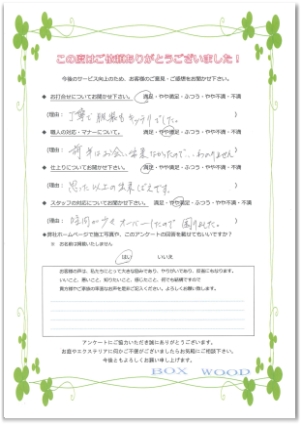 この度はご依頼ありがとうございました！
今後のサービス向上のため、お客様のご意見・ご感想をお聞かせ下さい。
◆ お打合せについてお聞かせ下さい。 満足・やや満足・ふつう・やや不満・不満
(理由： 丁寧で説明もキッチリでした。 )
◆ 職人の対応・マナーについて。 満足・やや満足・ふつう・やや不満・不満
(理由： お会い出来なかったので‥わかりません )
◆ 仕上りについてお聞かせ下さい。 満足・やや満足・ふつう・やや不満・不満
(理由： 思った以上の出来ばえです。 )
◆ スタッフの対応についてお聞かせ下さい。 満足・やや満足・ふつう・やや不満・不満
(理由： 時間が少々オーバーしたので 困りました。 )
◆弊社ホームページで施工写真や、このアンケートの回答を載せてもいいですか？
※ お名前は掲載いたしません
はい いいえ
お客様の声は、私たちにとって大きな励みであり、やりがいであり、改善にもなります。
いいこと、悪いこと、知りたいこと、感じたこと、何でも結構ですので
アンケートにご協力いただき誠にありがとうございます。
お庭やエクステリアに何かご不便がございましたらお気軽にご相談下さい。
今後ともよろしくお願い申し上げます。
BOX WOOD